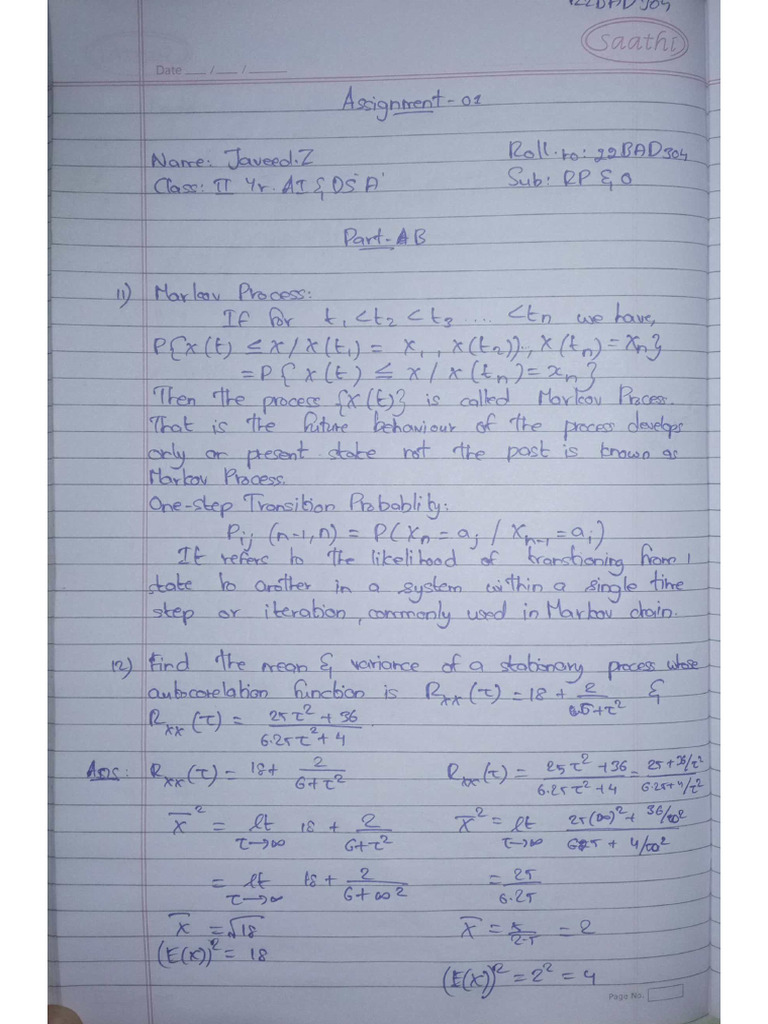 22BAD304
Saathi
Date ___/___/_____
Assignment-01
Name: Javeed.Z Roll.no: 22BAD304
Class: II Yr. AI & DS 'A' Sub: RP & O
Part-AB
11) Markov Process:
If for t₁ < t₂ < t₃ .... < tn we have,
P{X(t) ≤ x / X(t₁) = x₁, X(t₂))..., X(tn) = xn}
= P{X(t) ≤ x / X(tn) = xn}
Then the process {X(t)} is called Markov Process.
That is the future behaviour of the process develops
only on present state not the past is known as
Markov Process.
One-step Transition Probablity:
Pij (n-1, n) = P(Xn = aj / Xn-1 = ai)
It refers to the likelihood of transtioning from 1
state to another in a system within a single time
step or iteration, commonly used in Markov chain.
12) Find the mean & variance of a stationary process whose
autocorelation function is Rxx(τ) = 18 + 2/(6+τ²) &
Rxx(τ) = (25τ² + 36)/(6.25τ² + 4)
Ans: Rxx(τ) = 18 + 2/(6+τ²) Rxx(τ) = (25τ² + 36)/(6.25τ² + 4) = (25 + 36/τ²)/(6.25 + 4/τ²)
X̄² = lt τ→∞ 18 + 2/(6+τ²) X̄² = lt τ→∞ (25(∞)² + 36/∞²)/(6.25 + 4/∞²)
= lt τ→∞ 18 + 2/(6+∞²) = 25/6.25
X̄ = √18 X̄ = 5/2.5 = 2
(E(x))² = 18
(E(X))² = 2² = 4
Page No.